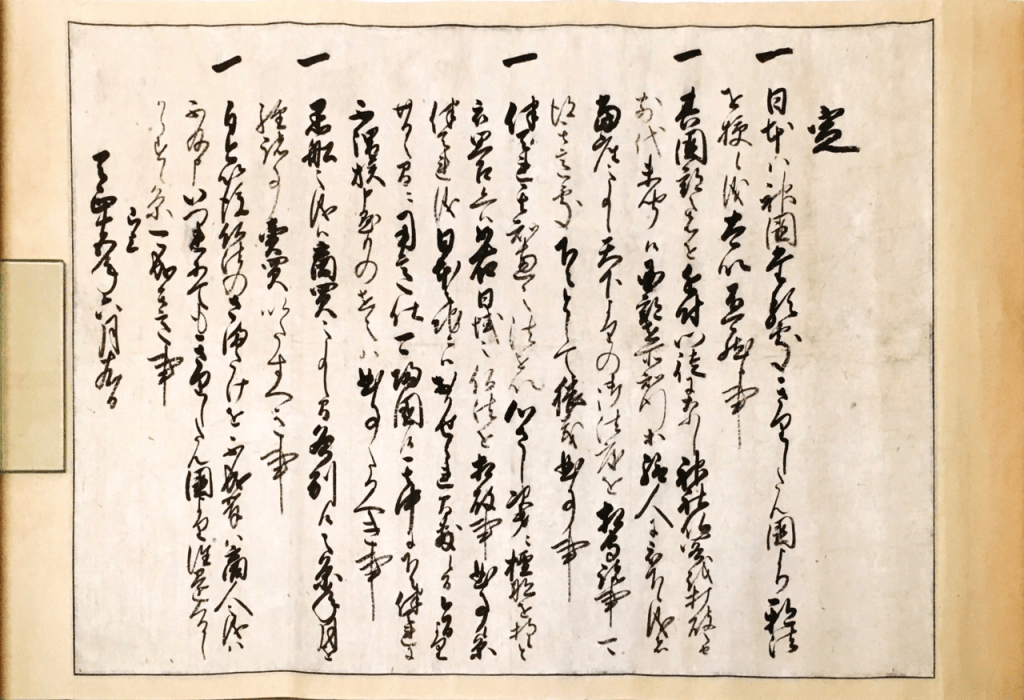 定
一 日本ハ神国たる処きりしたん国より邪法を
授候儀太以不可然候事
一 其国郡之者を近付門徒になし神社仏閣を打破之由
前代未聞候国郡在所知行等給人に被下候儀者
当座之事候天下よりの御法度を相守諸事可
得其意処下々として猥義曲事事
一 伴天連其知恵之法を以心さし次第ニ檀那を持候と
被思召候ヘハ如右日域之仏法を相破事曲事候条
伴天連儀日本之地ニハおかせられ間敷候間今日より
廿日之間ニ用意仕可帰国候其中に下々伴天連に
不謂族申懸もの在之ハ曲事たるへき事
一 黒船之儀ハ商買之事候間各別候之条年月を
経諸事売買いたすへき事
一 自今以後仏法のさまたけを不成輩ハ商人之儀ハ
不及申いつれにてもきりしたん国より往還くるし
からす候条可成其意事
已上
天正十五年六月十九日